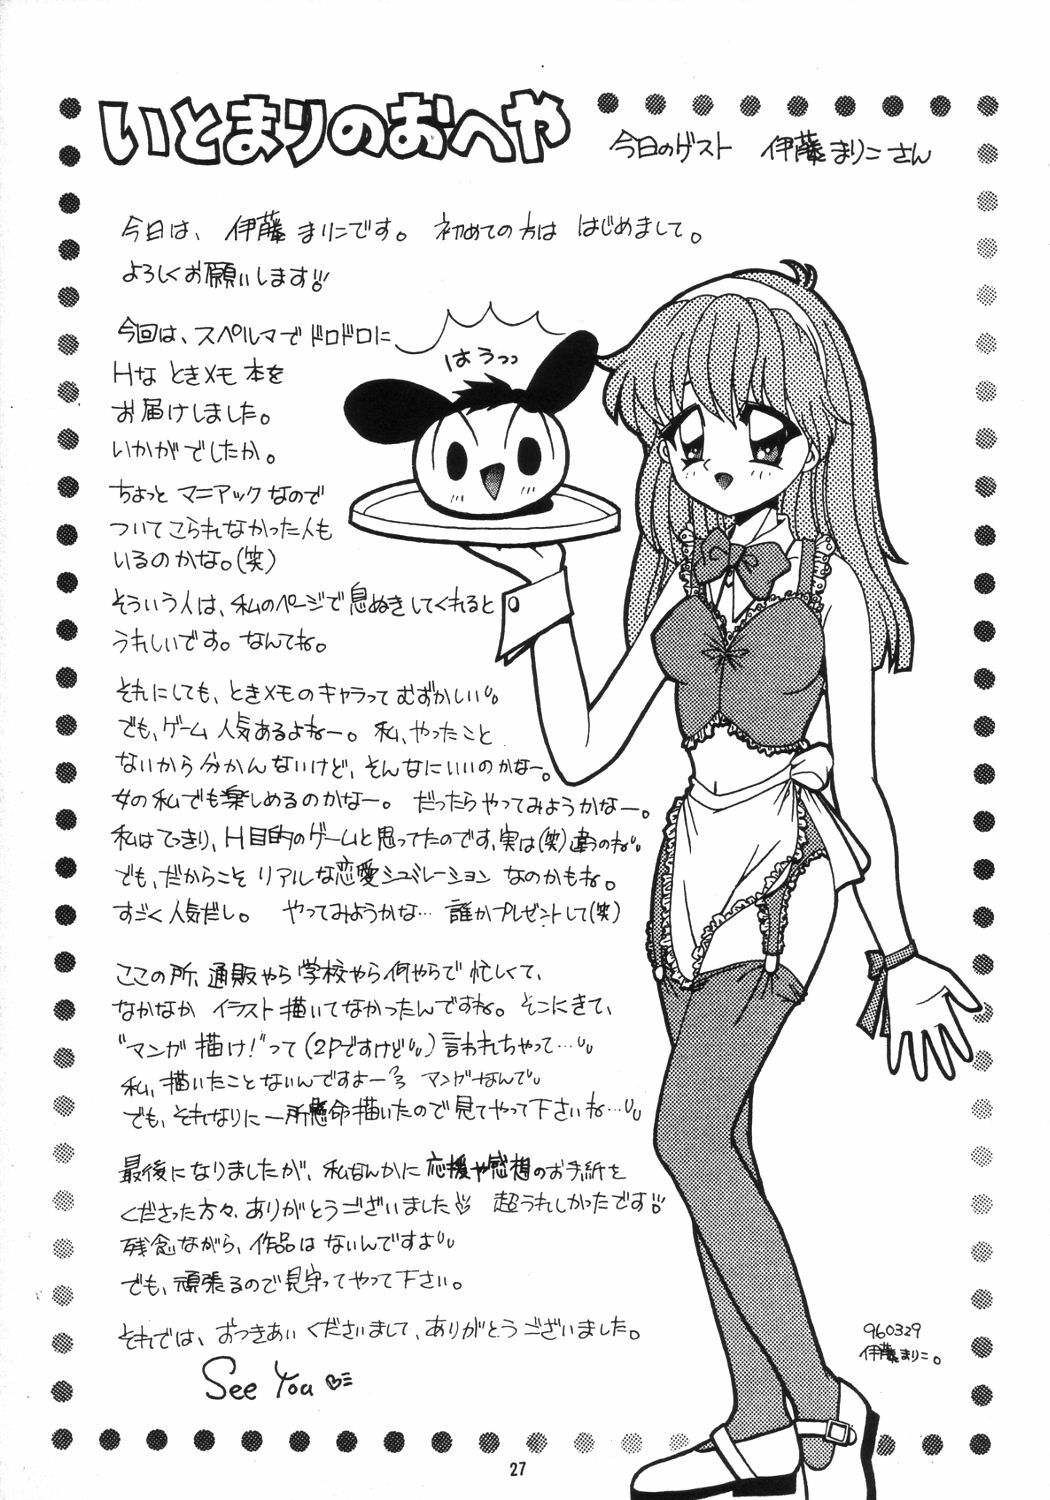 いとまりのおへや
今日のゲスト 伊藤まりこさん
今日は、伊藤まりこです。初めての方は はじめまして。
よろしくお願いします!!
今回は、スペルマでドロドロに
Hな ときメモ 本を
お届けしました。
いかがでしたか。
はうっっ
ちょっと マニアックなので
ついてこられなかった人も
いるのかな。(笑)
そういう人は、私のページで息ぬきしてくれると
うれしいです。なんてね。
それにしても、ときメモのキャラって むずかしい
でも、ゲーム 人気あるよねー。私、やったこと
ないから分かんないけど、そんなにいいのかなー。
女の私でも楽しめるのかなー。だったらやってみようかなー。
私はてっきり、H目的のゲームと思ってたのです、実は(笑)違うのね
でも、だからこそ リアルな恋愛シュミレーション なのかもね。
すごく人気だし。 やってみようかな… 誰かプレゼントして(笑)
ここの所、通販やら学校やら何やらで 忙しくて、
なかなか イラスト描いてなかったんですね。そこにきて、
"マンガ 描け!"って(2Pですけど)言われちゃって…
私、描いたことないんですよー マンガなんて
でも、それなりに一所懸命描いたので見てやって下さいね…
最後になりましたが、私なんかに応援や感想のお手紙を
くださった方々、ありがとうございました 超うれしかったです!!
残念ながら、作品はないんですよ
でも、頑張るので見守ってやって下さい。
それでは、おつきあいくださいまして、ありがとうございました。
See You
960329
伊藤まりこ。
27